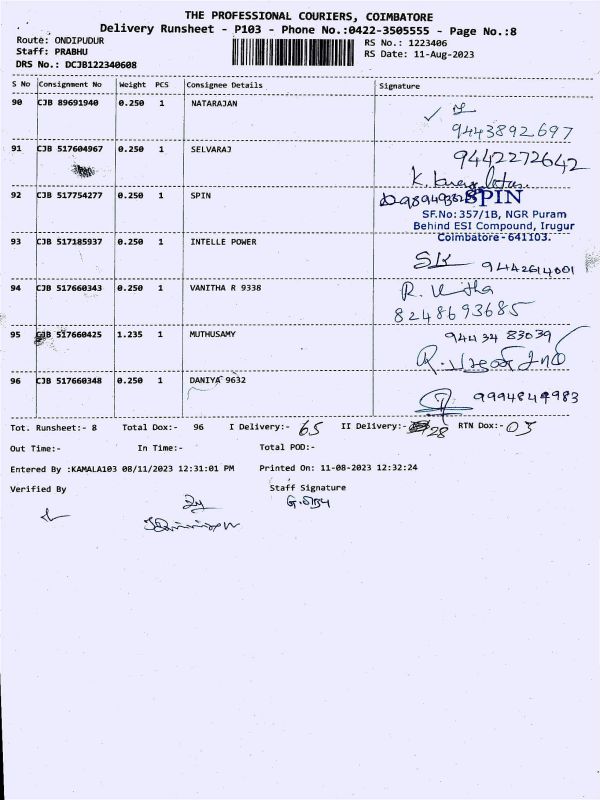 THE PROFESSIONAL COURIERS, COIMBATORE
Delivery Runsheet - P103 - Phone No.:0422-3505555 - Page No.:8
Route: ONDIPUDUR RS No.: 1223406
Staff: PRABHU RS Date: 11-Aug-2023
DRS No.: DCJB122340608
S No Consignment No Weight PCS Consignee Details Signature
90 CJB 89691940 0.250 1 NATARAJAN
9443892697
91 CJB 517604967 0.250 1 SELVARAJ 9442272642
92 CJB 517754277 0.250 1 SPIN SPIN
SF.No: 357/1B, NGR Puram
Behind ESI Compound, Irugur
Coimbatore - 641103.
93 CJB 517185937 0.250 1 INTELLE POWER
SK 9442614001
94 CJB 517660343 0.250 1 VANITHA R 9338
8248693685
95 CJB 517660425 1.235 1 MUTHUSAMY 94434 83039
96 CJB 517660348 0.250 1 DANIYA 9632
9994844983
Tot. Runsheet:- 8 Total Dox:- 96 I Delivery:- 65 II Delivery:- 28 RTN Dox:- 03
Out Time:- In Time:- Total POD:-
Entered By :KAMALA103 08/11/2023 12:31:01 PM Printed On: 11-08-2023 12:32:24
Verified By Staff Signature